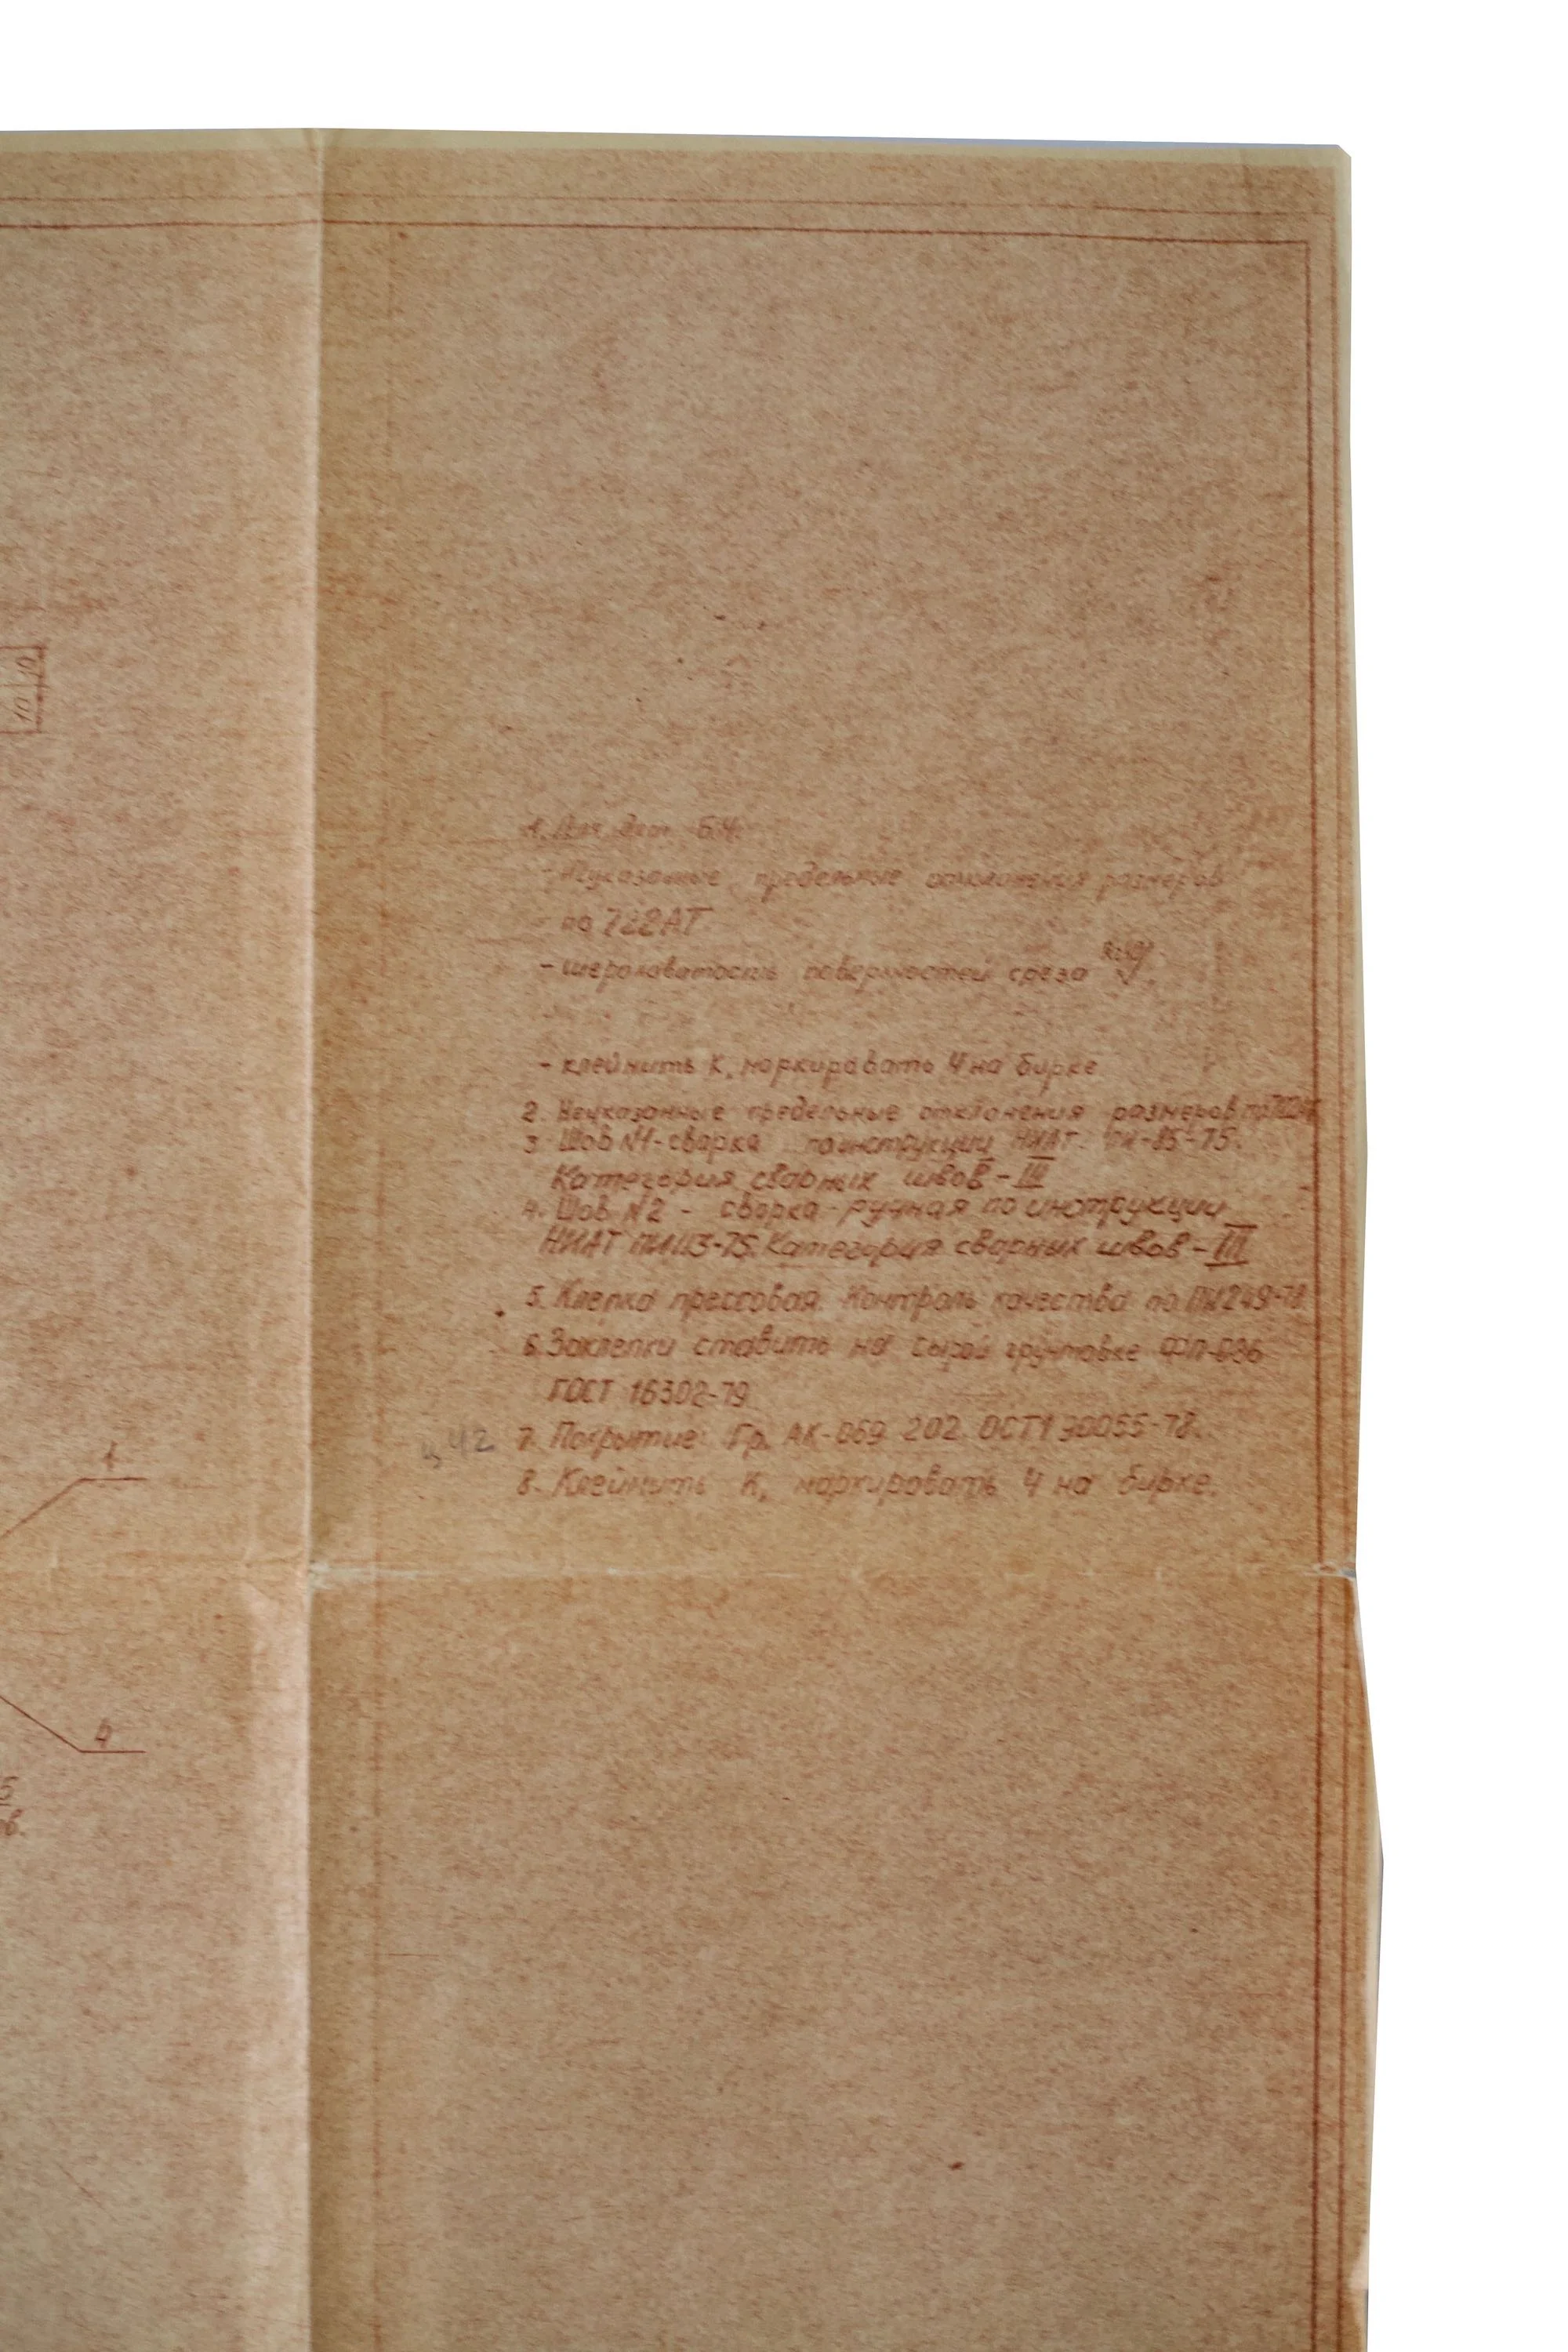 10 10
1. Для дет. БЧ:
- Неуказанные предельные отклонения размеров
по 722АТ
- шероховатость поверхностей среза
- клеймить К, маркировать Ч на бирке
2. Неуказанные предельные отклонения размеров по 722АТ
3. Шов №1 - сварка по инструкции НИАТ ПИ-85-75.
Категория сварных швов - III
4. Шов №2 - сварка ручная по инструкции
НИАТ ПИ113-75. Категория сварных швов - III
5. Клепка прессовая. Контроль качества по ПИ249-78
6. Заклепки ставить на сырой грунтовке ФЛ-086
ГОСТ 16302-79
42 7. Покрытие: Гр. АК-069 202 ОСТ1 90055-78.
8. Клеймить К, маркировать Ч на бирке.
1
4
5
ов.